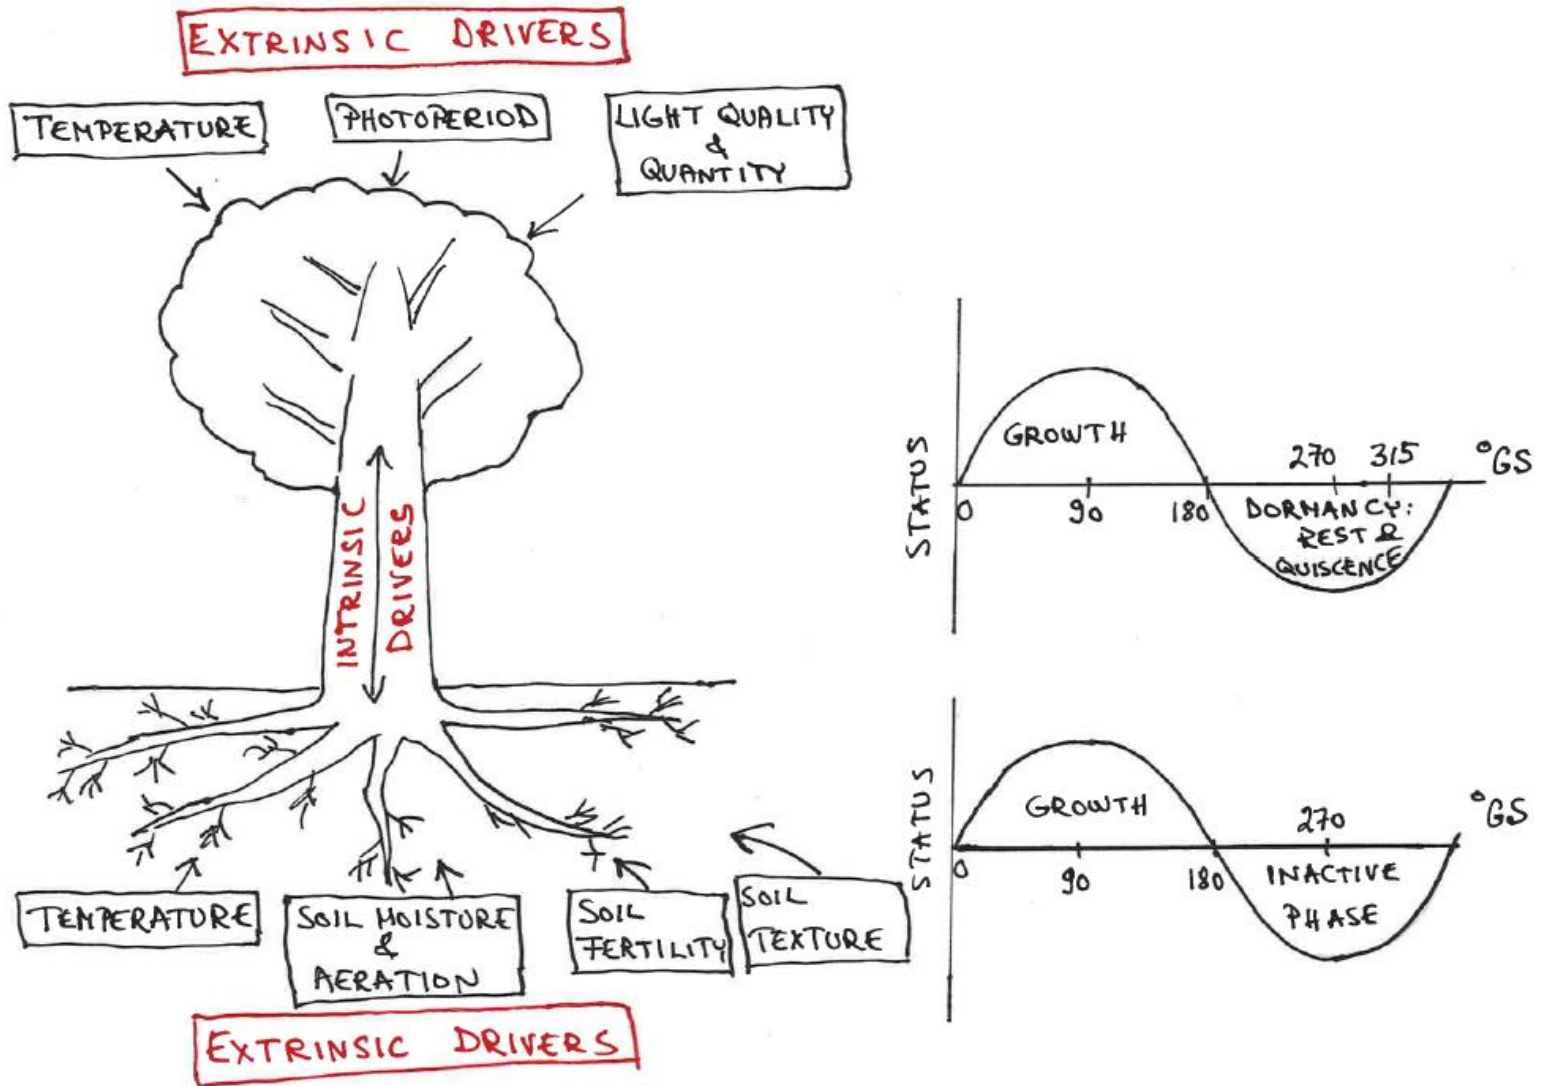 EXTRINSIC DRIVERS
TEMPERATURE
PHOTOPERIOD
LIGHT QUALITY
&
QUANTITY
INTRINSIC
DRIVERS
TEMPERATURE
SOIL MOISTURE
&
AERATION
SOIL
FERTILITY
SOIL
TEXTURE
EXTRINSIC DRIVERS
STATUS
GROWTH
270 315 °GS
0 90 180 DORMANCY:
REST &
QUISCENCE
STATUS
GROWTH
270 °GS
0 90 180 INACTIVE
PHASE